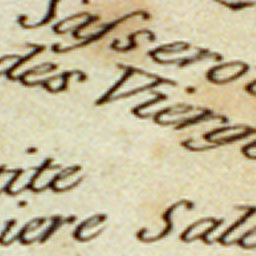 Saſsero
des Vierge
rite
iere Sale